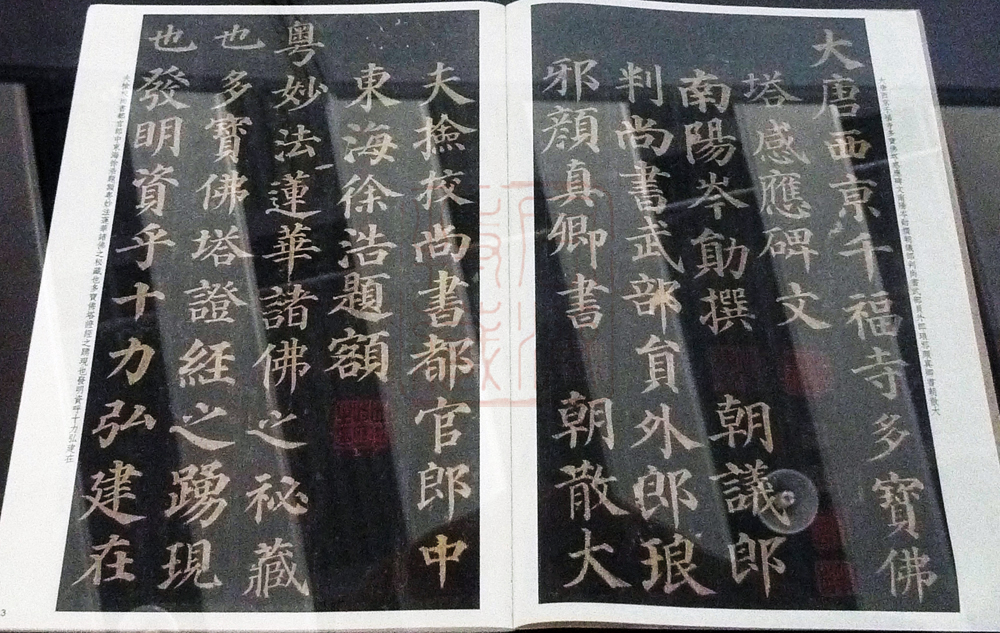 大唐西京千福寺多寶佛
塔感應碑文
南陽岑勛撰 朝議郎
判尚書武部員外郎琅
邪顏真卿書 朝散大
夫撿挍尚書都官郎中
東海徐浩題額
粵妙法蓮華諸佛之秘藏
也多寶佛塔證經之踴現
也發明資乎十力弘建在
3